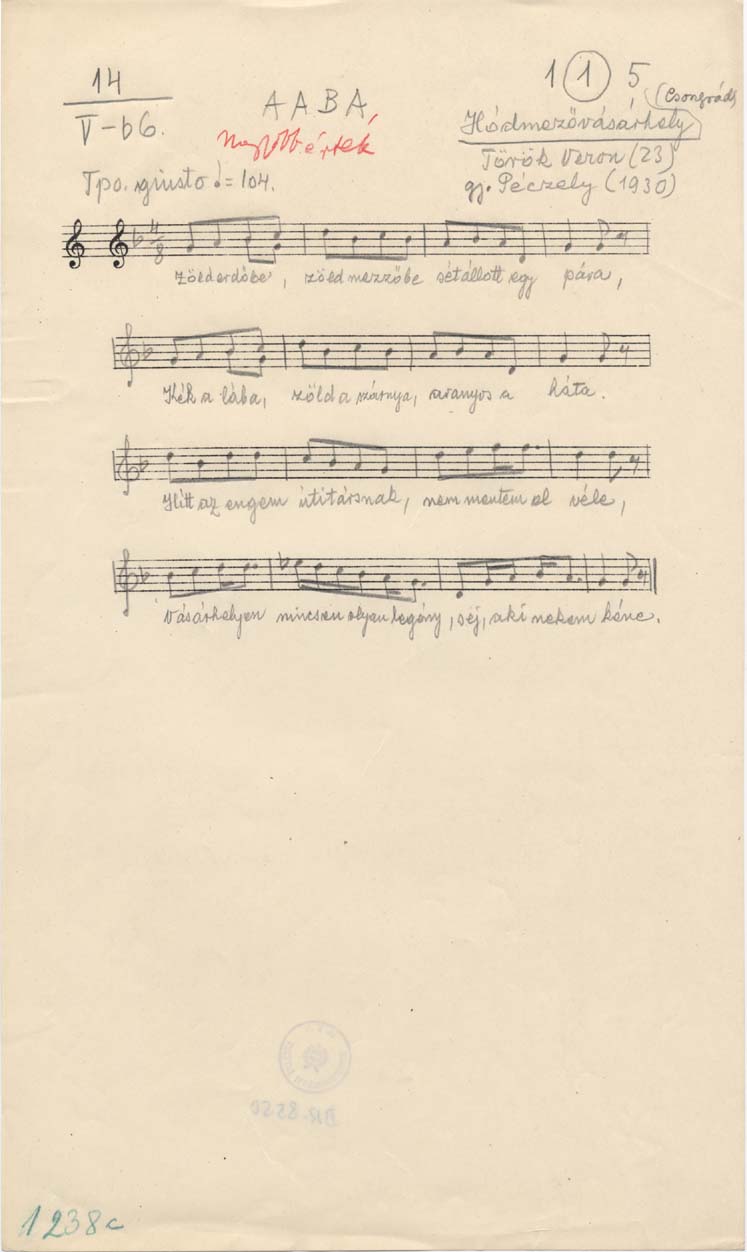 14
V-b6.
A A B Á
1 1 5
(Csongrád)
Hódmezővásárhely
Török Veron (23)
gy. Péczely (1930)
Tpo. giusto ♩= 104.
4/8
Zöld erdőbe, zöld mezzőbe sétállott egy pára,
Kék a lába, zöld a szárnya, aranyos a háta.
Hitt az engem útitársnak, nem mentem el véle,
Vásárhelyen nincsen olyan legény, sej, aki nekem kéne.
BR. 8550
1238c